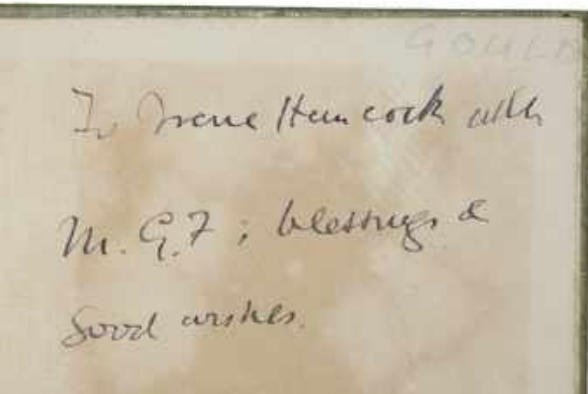 GOULD
To Irene Hancock with
M. G. F; blessings &
good wishes.